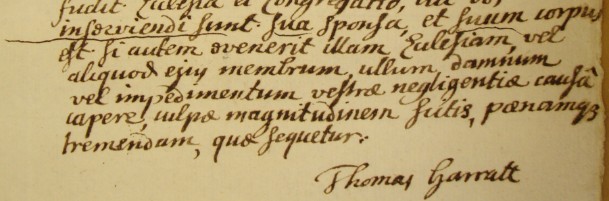 fudit. Ecclesia et Congregatio, cui vos
inserviendi sunt. sua sponsa, et suum corpus
est. si autem evenerit illam Eclesiam, vel
aliquod ejus membrum, ullum damnum
vel impedimentum vestræ negligentiæ causâ
capere, culpæ magnitudinem scitis, pænamqȝ
tremendam, quæ sequetur:
Thomas Garratt